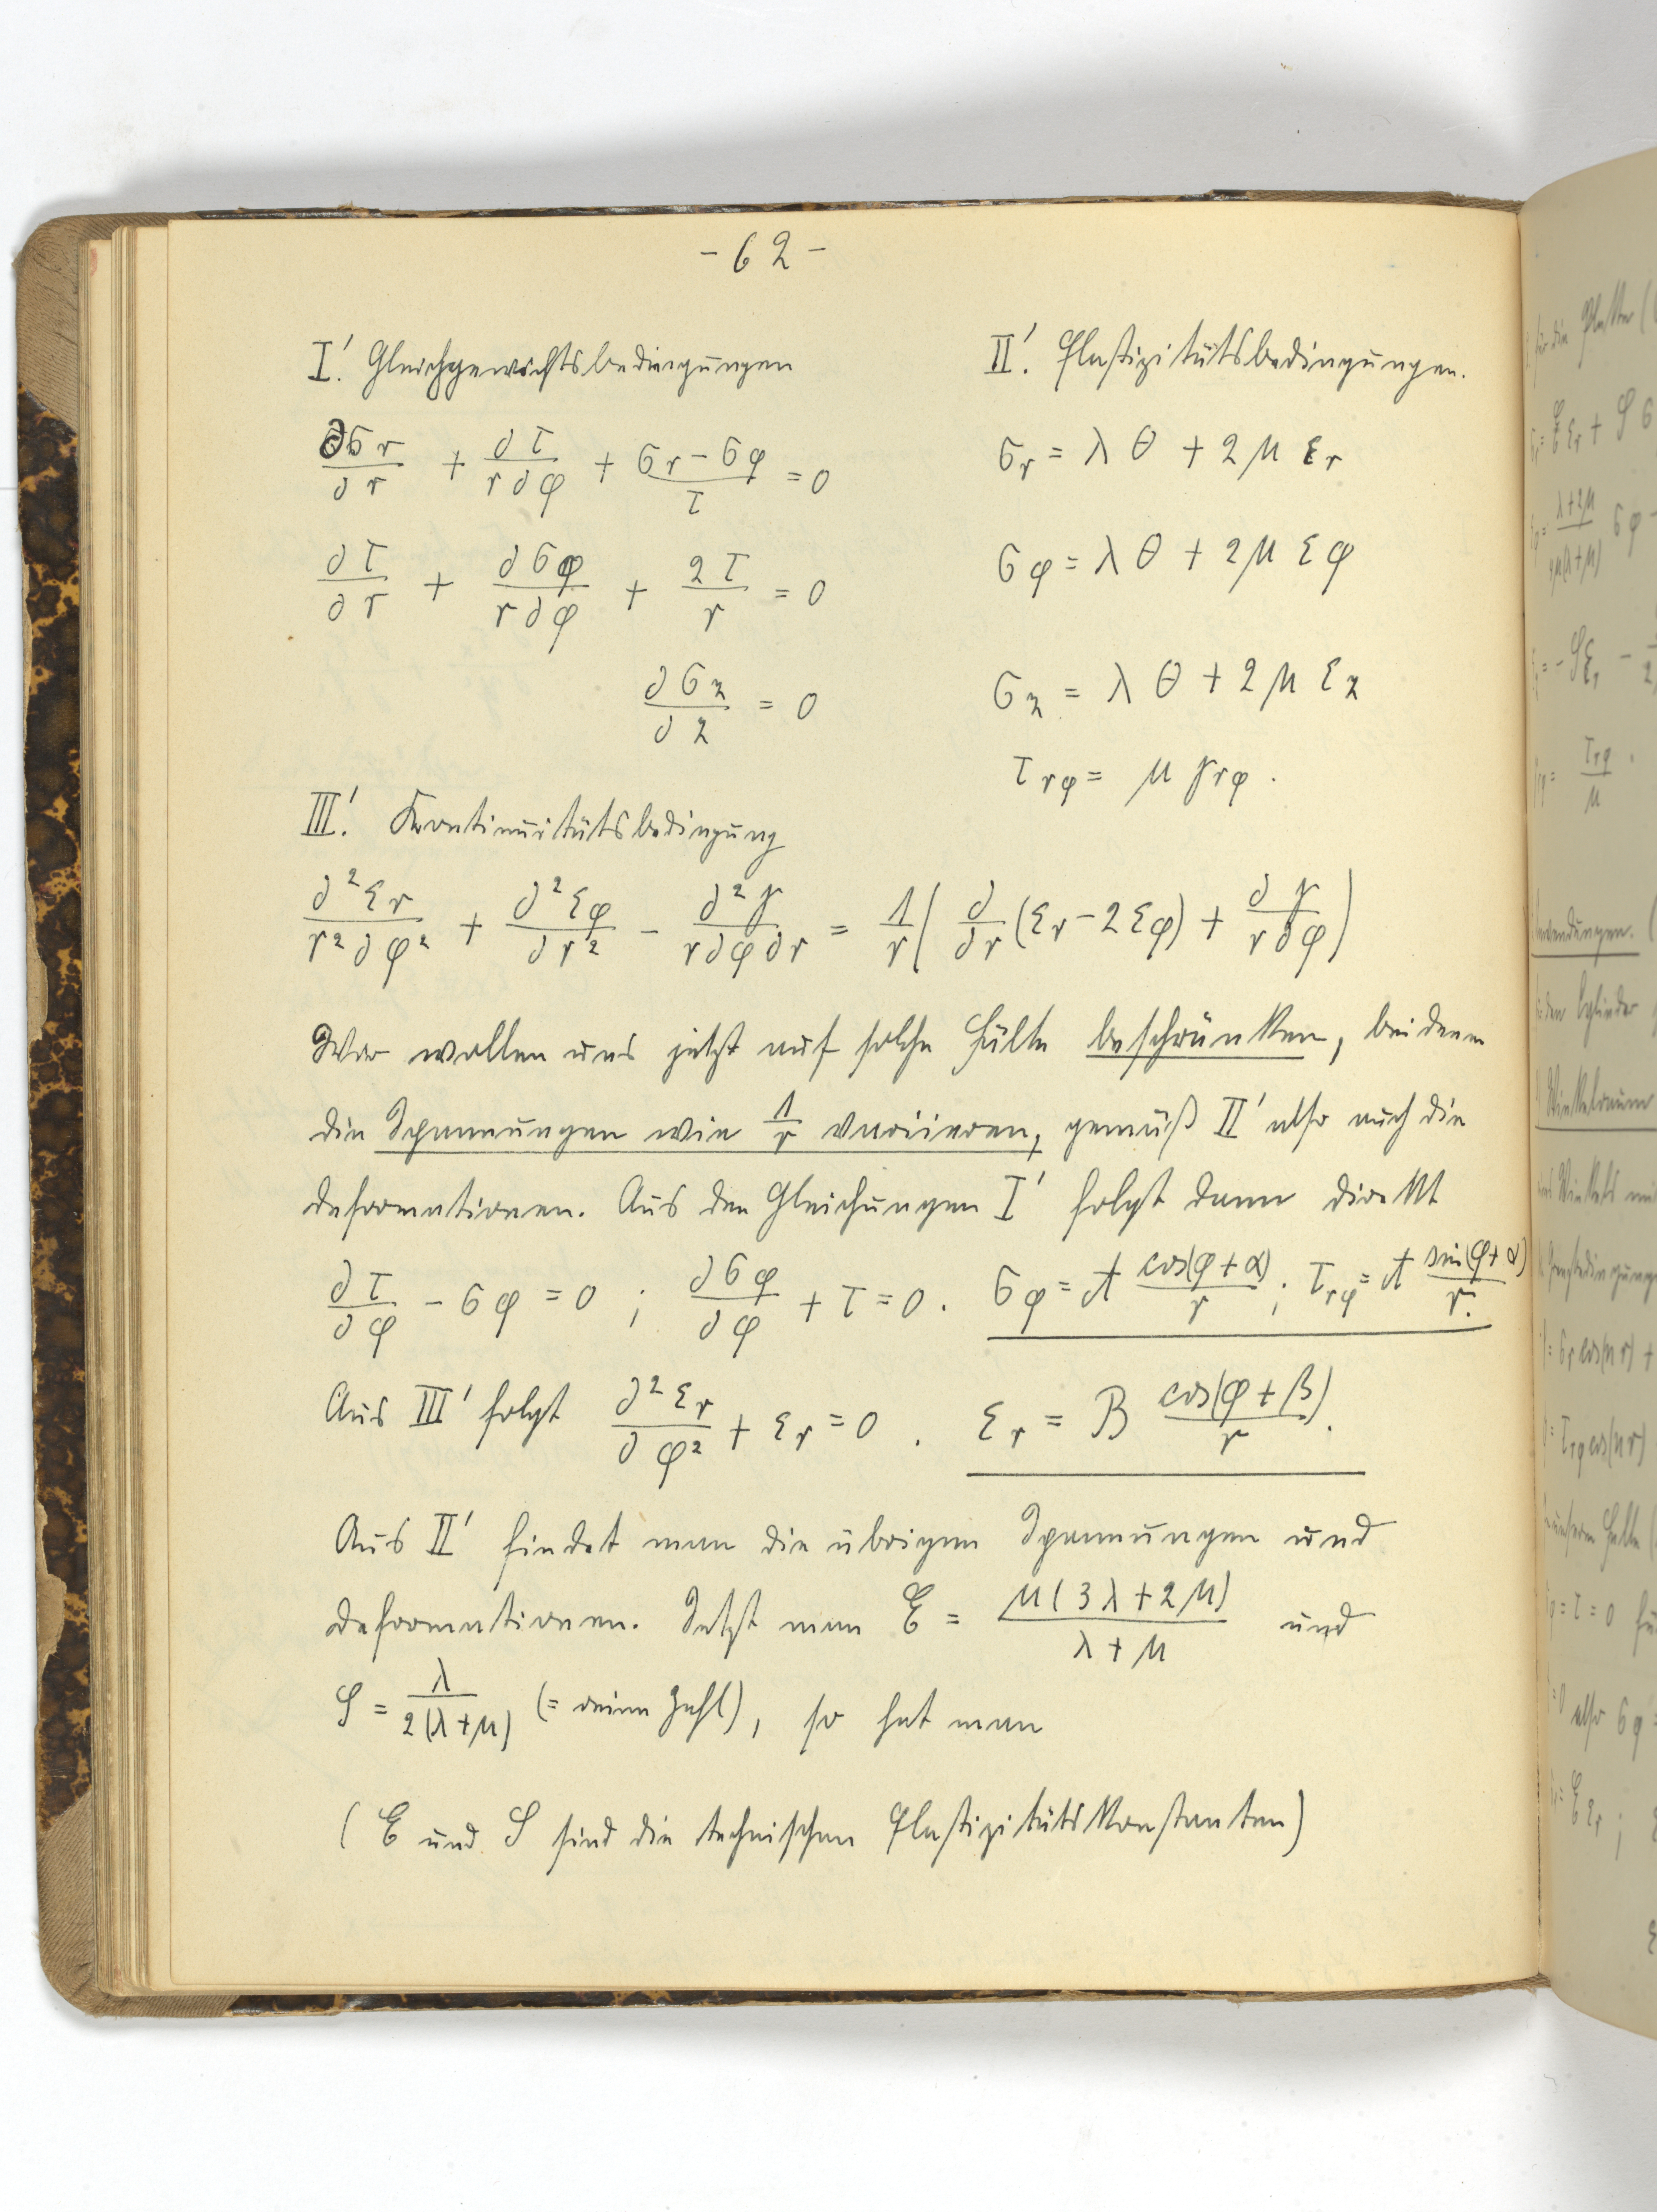 - 62 -
I'. Gleichgewichtsbedingungen
∂σr/∂r + ∂τ/r∂φ + (σr - σφ)/τ = 0
∂τ/∂r + ∂σφ/r∂φ + 2τ/r = 0
∂σz/∂z = 0
II'. Elastizitätsbedingungen.
σr = λθ + 2μεr
σφ = λθ + 2μεφ
σz = λθ + 2μεz
τrφ = μγrφ.
III'. Kontinuitätsbedingung
∂²εr/r²∂φ² + ∂²εφ/∂r² - ∂²γ/r∂φ∂r = 1/r (∂/∂r (εr - 2εφ) + ∂γ/r∂φ)
Wir wollen uns jetzt auf solche Fälle beschränken, bei denen
die Spannungen wie 1/r variieren, gemäß II' also auch die
Deformationen. Aus den Gleichungen I' folgt dann direkt
∂τ/∂φ - σφ = 0 ; ∂σφ/∂φ + τ = 0. σφ = A cos(φ+α)/r ; τrφ = A sin(φ+α)/r.
Aus III' folgt ∂²εr/∂φ² + εr = 0. εr = B cos(φ+β)/r.
Aus II' findet man die übrigen Spannungen und
Deformationen. Setzt man E = μ(3λ+2μ)/(λ+μ) und
φ = λ/2(λ+μ) (= reine Zahl), so hat man
(E und φ sind die technischen Elastizitätskonstanten)